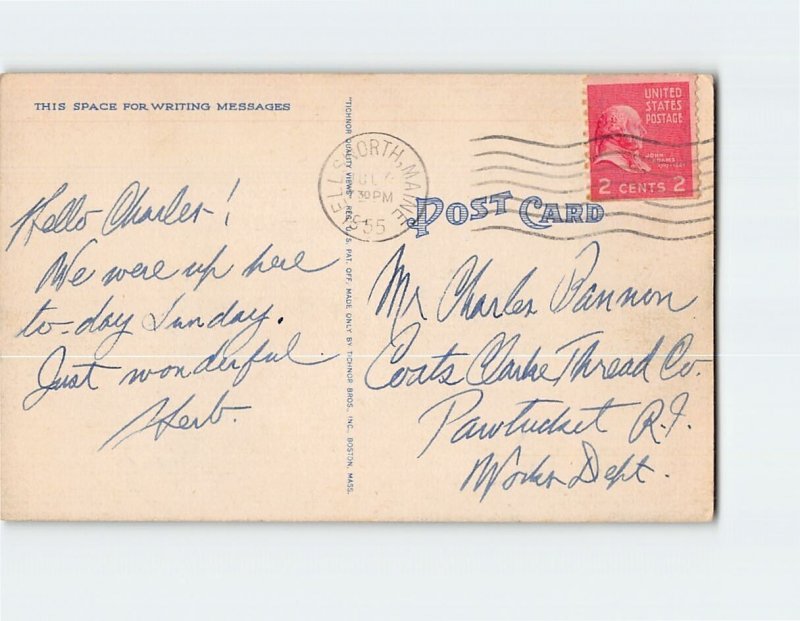 THIS SPACE FOR WRITING MESSAGES
Hello Charles!
We were up here
to-day Sunday.
Just wonderful
Herb.
"TICHNOR QUALITY VIEWS," REG. U. S. PAT. OFF. MADE ONLY BY TICHNOR BROS., INC., BOSTON, MASS.
ELLSWORTH, MAINE
30 PM
1955
UNITED
STATES
POSTAGE
JOHN
ADAMS
2 CENTS 2
POST CARD
Mr Charles Bannon
Coats Clarke Thread Co.
Pawtucket R.I.
Dept.